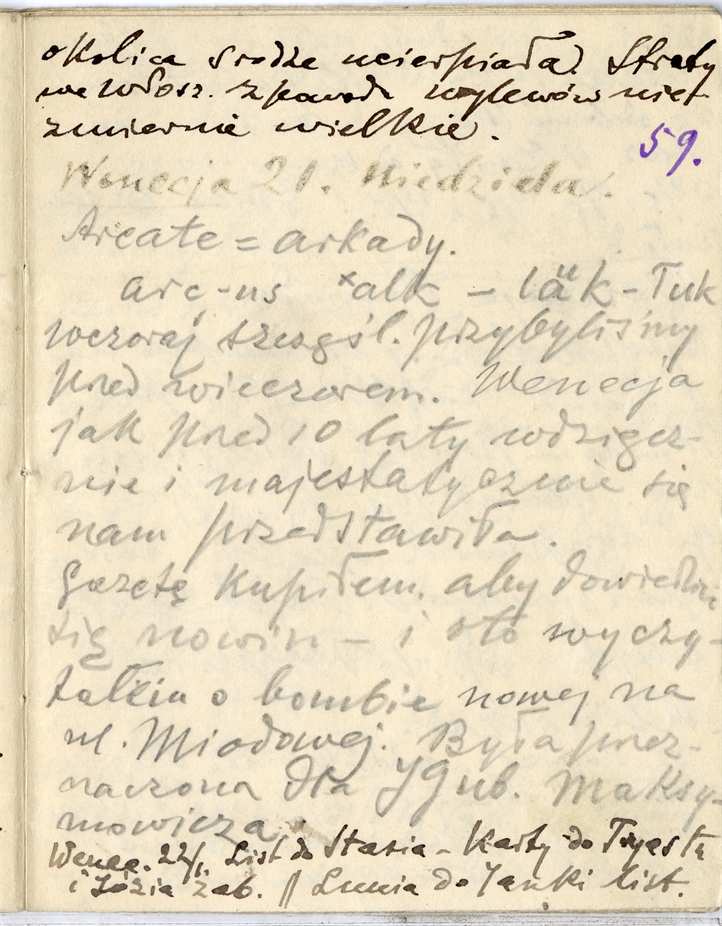 okolica srodze ucierpiała). Straty
we Włosz. z powodu wylewów nie-
zmiernie wielkie.
59.
Wenecja 21. Niedziela.
Arcate = arkady.
arc-us ˣalk – läk - Łuk
wczoraj szczęśl. przybyliśmy
przed wieczorem. Wenecja
jak przed 10 laty wdzięcz-
nie i majestatycznie się
nam przedstawiła.
Gazetę kupiłem, aby dowiedzieć
się nowin – i oto wyczy-
tałem o bombie nowej na
ul. Miodowej. Była prze-
naczona dla JGub. Maksy-
mowicza.
Wenec. 22/I. List do Stasia – Karty do Tryestu
i Józia Zab. // Lunia do Janki list.